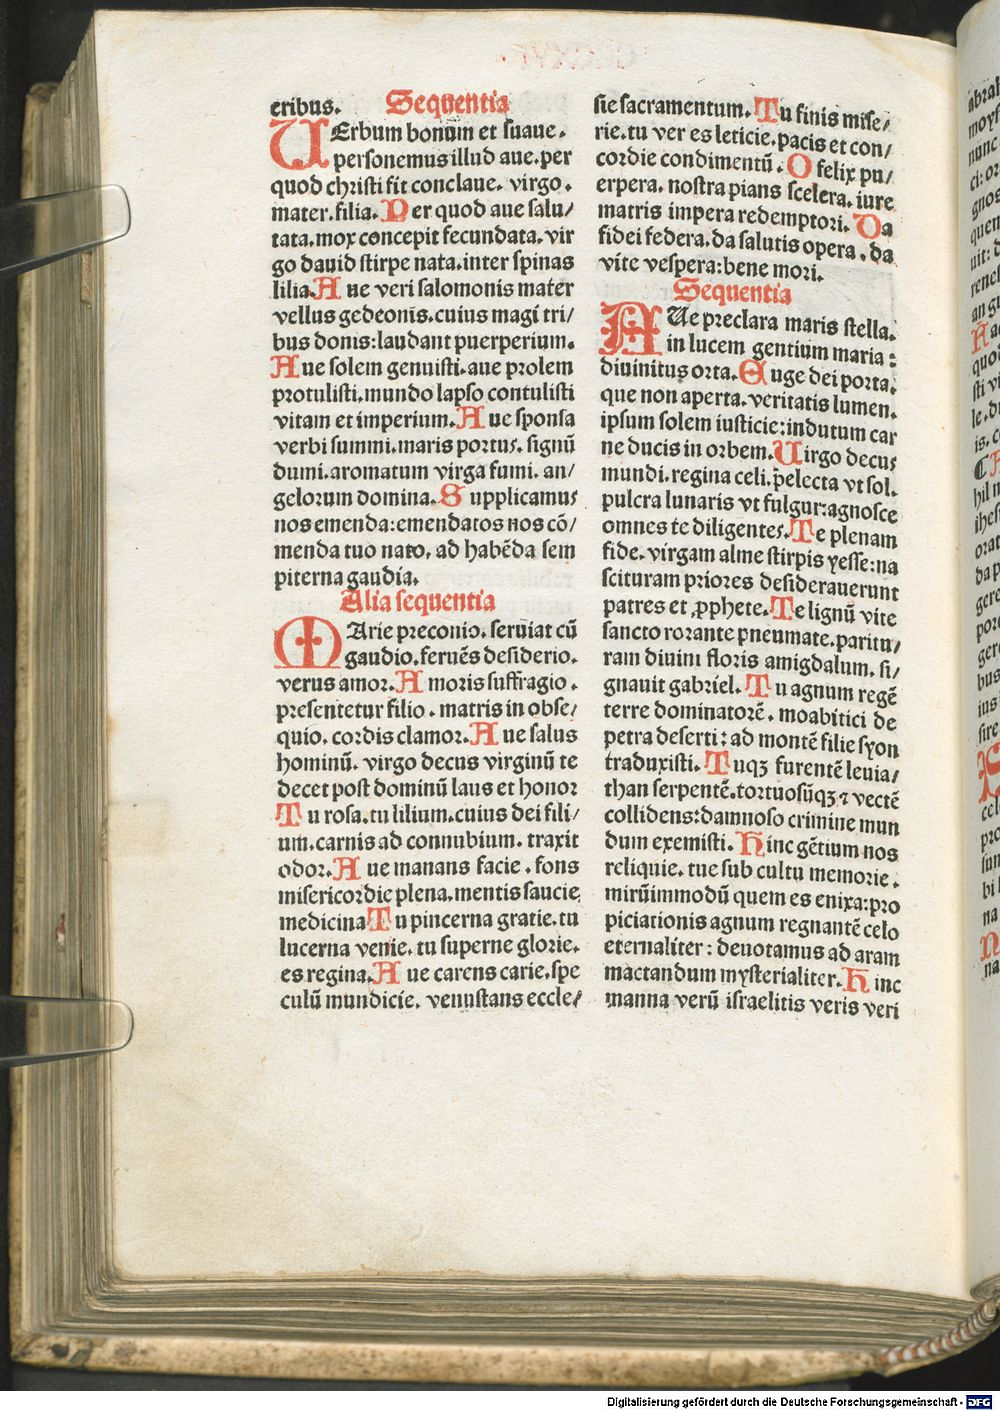 eribus. Sequentia
UErbum bonum et suaue.
personemus illud aue. per
quod christi fit conclaue. virgo.
mater. filia. Per quod aue salu/
tata. mox concepit fecundata. vir
go dauid stirpe nata. inter spinas
lilia. Aue veri salomonis mater
vellus gedeonis. cuius magi tri/
bus donis: laudant puerperium.
Aue solem genuisti. aue prolem
protulisti. mundo lapso contulisti
vitam et imperium. Aue sponsa
verbi summi. maris portus. signū
dumi. aromatum virga fumi. an/
gelorum domina. Supplicamus
nos emenda: emendatos nos cō/
menda tuo nato, ad habēda sem
piterna gaudia.
Alia sequentia
MArie preconio. seruiat cū
gaudio. feruēs desiderio.
verus amor. Amoris suffragio.
presentetur filio. matris in obse/
quio. cordis clamor. Aue salus
hominū. virgo decus virginū te
decet post dominū laus et honor
Tu rosa. tu lilium. cuius dei fili/
um. carnis ad connubium. traxit
odor. Aue manans facie. fons
misericordie plena. mentis saucie
medicina Tu pincerna gratie. tu
lucerna venie. tu superne glorie.
es regina. Aue carens carie. spe
culū mundicie. venustans eccle/
sie sacramentum. Tu finis mise/
rie. tu ver es leticie. pacis et con/
cordie condimentū. O felix pu/
erpera. nostra pians scelera. iure
matris impera redemptori. Da
fidei federa. da salutis opera. da
vite vespera: bene mori.
Sequentia
AUe preclara maris stella.
in lucem gentium maria:
diuinitus orta. Euge dei porta.
que non aperta. veritatis lumen.
ipsum solem iusticie: indutum car
ne ducis in orbem. Uirgo decus
mundi. regina celi. p̄electa vt sol.
pulcra lunaris vt fulgur: agnosce
omnes te diligentes. Te plenam
fide. virgam alme stirpis yesse: na
scituram priores desiderauerunt
patres et ꝓphete. Te lignū vite
sancto rorante pneumate. paritu/
ram diuini floris amigdalum. si/
gnauit gabriel. Tu agnum regē
terre dominatorē. moabitici de
petra deserti: ad montē filie syon
traduxisti. Tuqꝫ furentē leuia/
than serpentē. tortuosūqꝫ ⁊ vectē
collidens: damnoso crimine mun
dum exemisti. Hinc gētium nos
reliquie. tue sub cultu memorie.
mirūimmodū quem es enixa: pro
piciationis agnum regnantē celo
eternaliter: deuotamus ad aram
mactandum mysterialiter. Hinc
manna verū israelitis veris veri
abrah
moys
nunc
ci: or
gnos
quen
uit: d
renel
an gu
quod
sti vi
le. d
is. c
hil n
ihes
orat
da p
gere
por
ger
bus
ius
sire
cel
pro
sun
bi
na
na
Digitalisierung gefördert durch die Deutsche Forschungsgemeinschaft - DFG